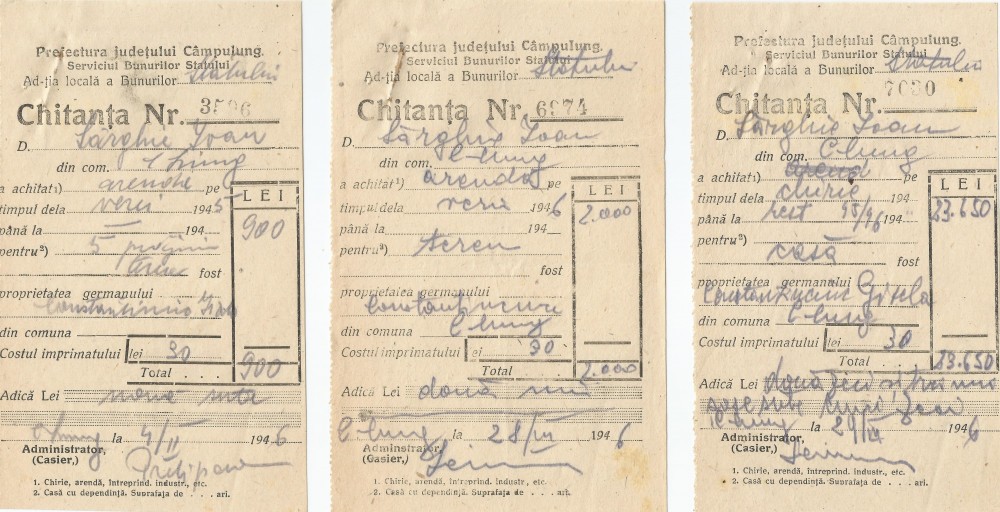 Prefectura județului Câmpulung.
Serviciul Bunurilor Statului
Ad-ția locală a Bunurilor Statului
Chitanța Nr. 3596
D. Sârghie Ioan
din com. C-lung
a achitat¹) arenda pe
timpul dela verei 1945
până la — 194
pentru²) 5 prăjini
teren fost
proprietatea germanului
din comuna
Costul imprimatului lei 30
LEI
900
Total . . . 900
Adică Lei nouă sute
C-lung la 4/II 1946
Administrator,
(Casier,)
1. Chirie, arendă, întreprind. industr., etc.
2. Casă cu dependință. Suprafața de . . . ari.
Prefectura județului Câmpulung.
Serviciul Bunurilor Statului
Ad-ția locală a Bunurilor Statului
Chitanța Nr. 6974
D. Sârghie Ioan
din com. C-lung
a achitat¹) arenda pe
timpul dela verii 1946
până la 194
pentru²) teren
fost
proprietatea germanului
din comuna C-lung
Costul imprimatului lei 30
LEI
2.000
Total . . . 2.000
Adică Lei două mii
C-lung la 28/ 1946
Administrator,
(Casier,)
1. Chirie, arendă, întreprind. industr., etc.
2. Casă cu dependință. Suprafața de . . . ari.
Prefectura județului Câmpulung.
Serviciul Bunurilor Statului
Ad-ția locală a Bunurilor Statului
Chitanța Nr.
D. Sârghie Ioan
din com. C-lung
a achitat¹) chirie pe
timpul dela 194
până la rest 45/46
pentru²) casă
fost
proprietatea germanului
Gisela
din comuna C-lung
Costul imprimatului lei 30
LEI
23.650
Total . . . 23.650
Adică Lei două zeci și trei mii
șase sute cinci zeci
C-lung la 29/ 1946
Administrator,
(Casier,)
1. Chirie, arendă, întreprind. industr., etc.
2. Casă cu dependință. Suprafața de . . . ari.